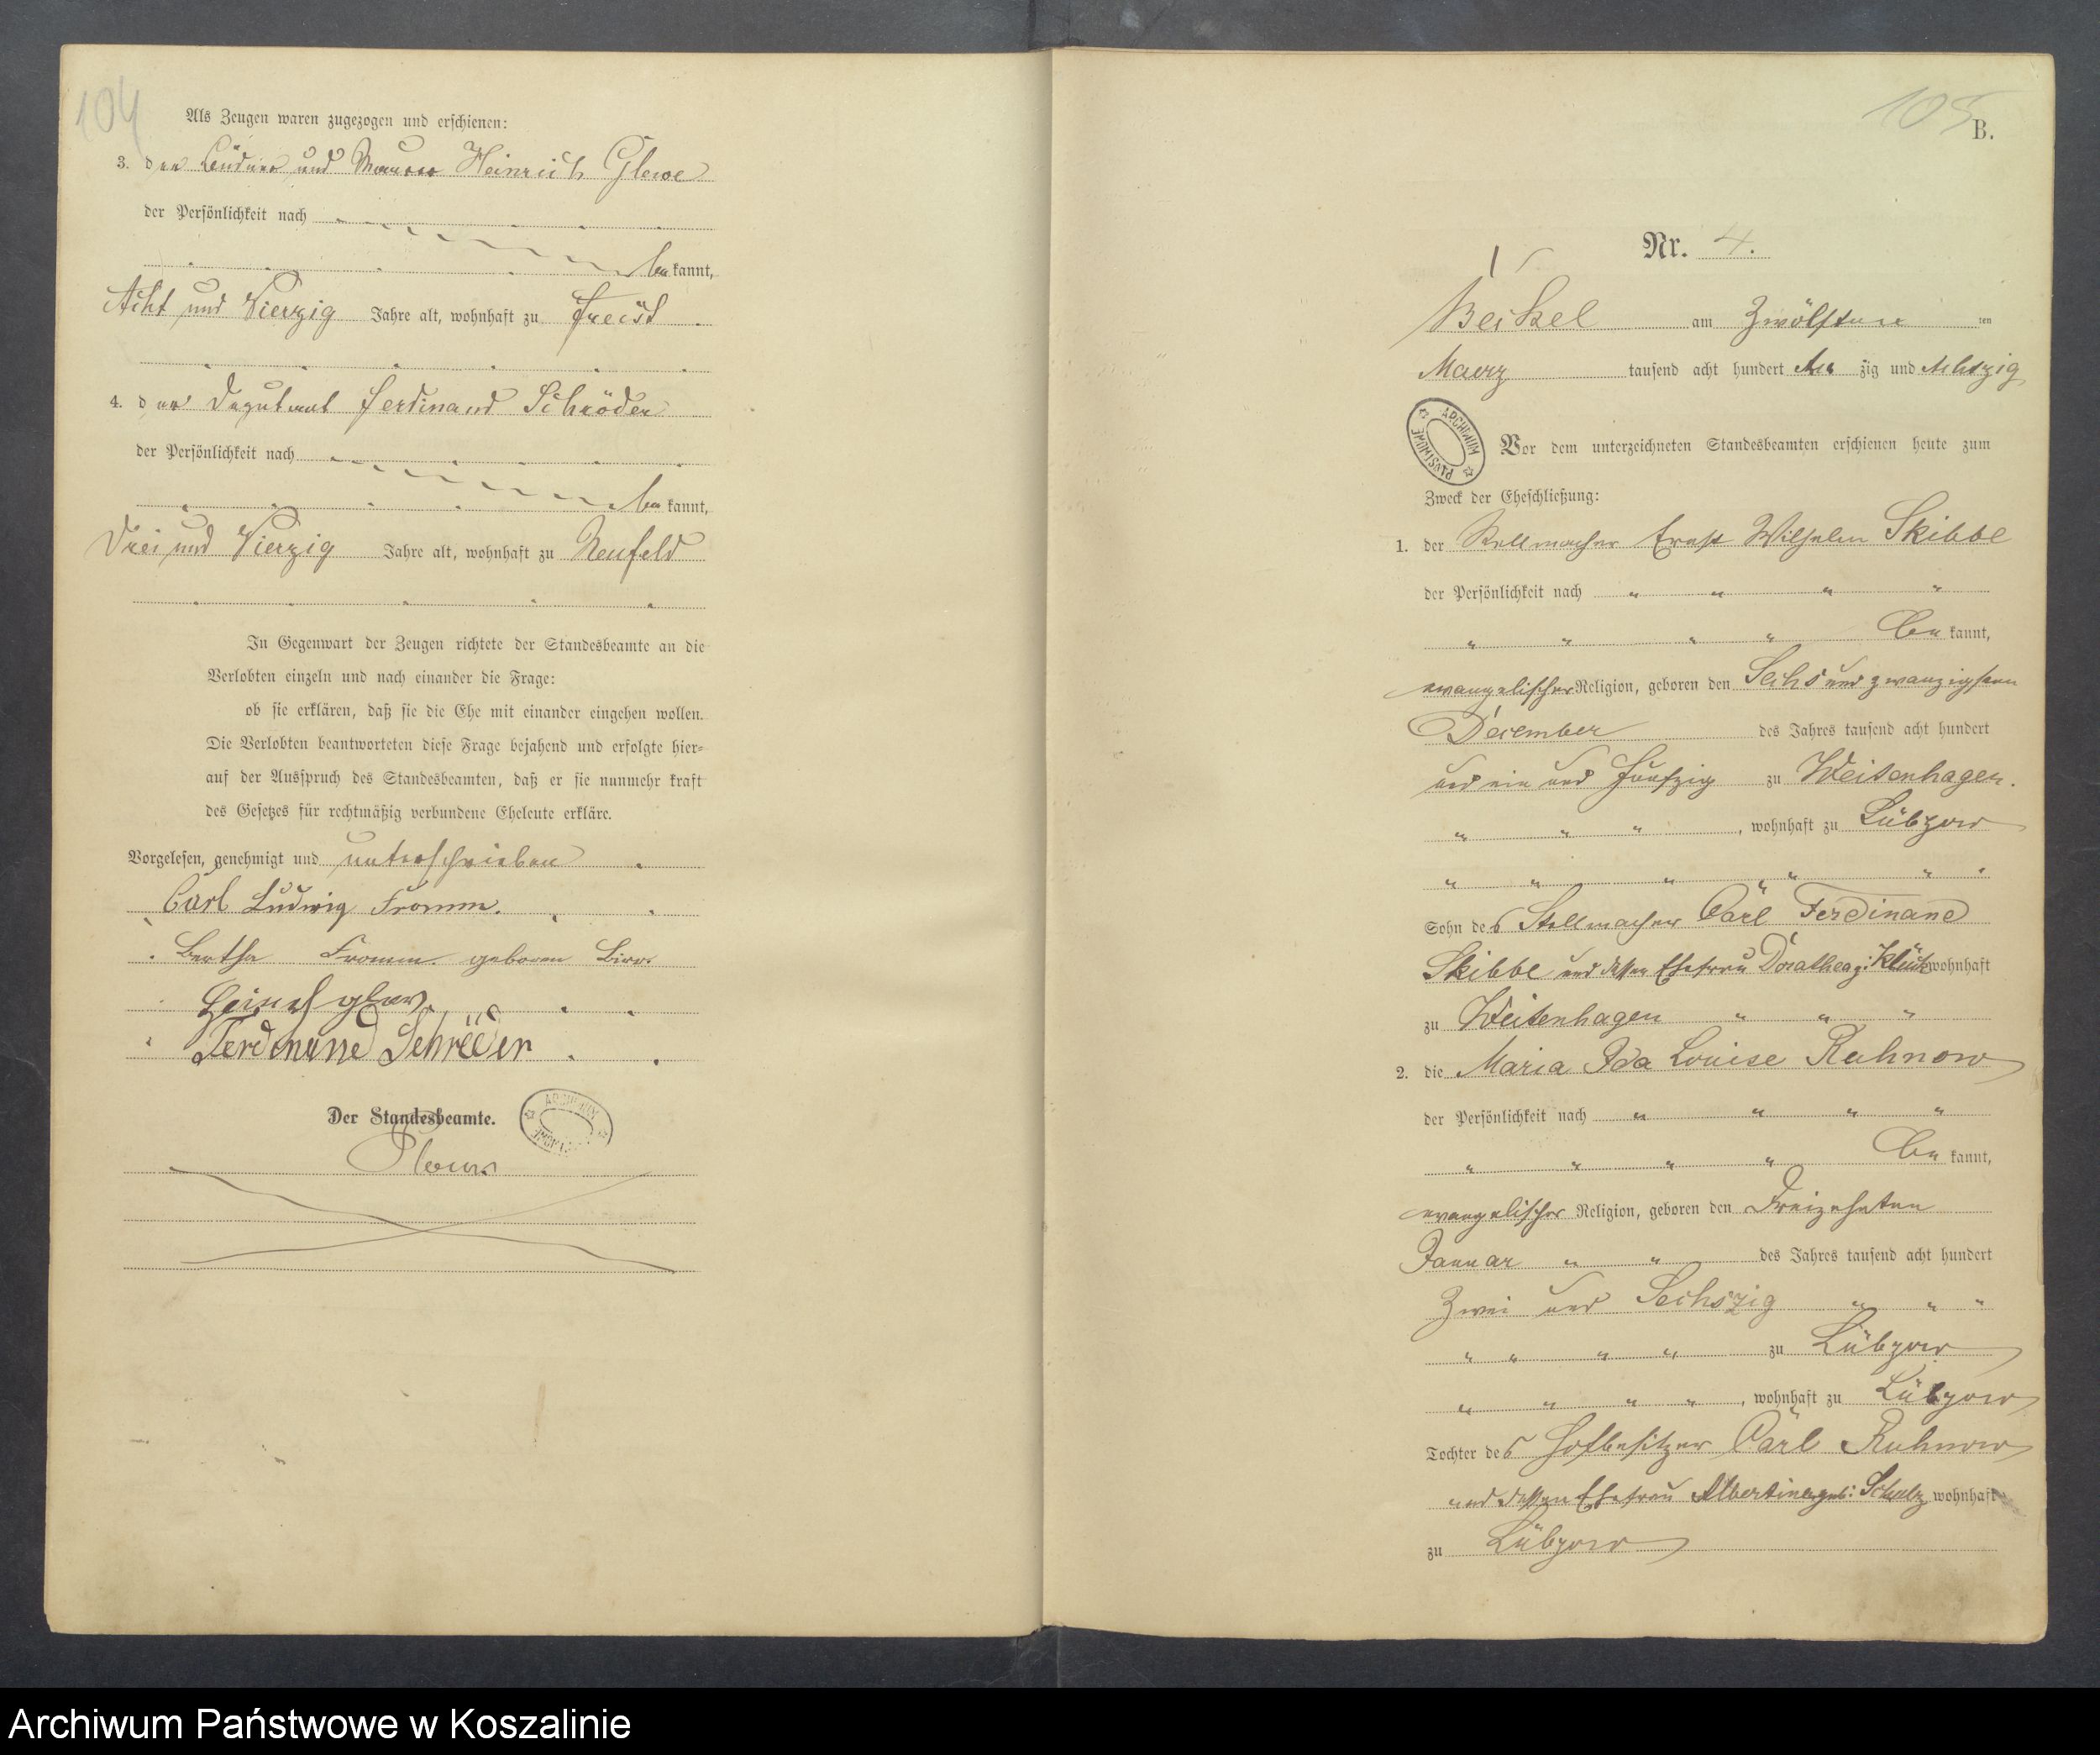 104
Als Zeugen waren zugezogen und erschienen:
3. der Büdner und Maurer Heinrich Glewe
der Persönlichkeit nach
bekannt,
Acht und Vierzig Jahre alt, wohnhaft zu Freist
4. der Deputant Ferdinand Schröder
der Persönlichkeit nach
bekannt,
Drei und Vierzig Jahre alt, wohnhaft zu Neufeld
In Gegenwart der Zeugen richtete der Standesbeamte an die
Verlobten einzeln und nach einander die Frage:
ob sie erklären, daß sie die Ehe mit einander eingehen wollen.
Die Verlobten beantworteten diese Frage bejahend und erfolgte hier=
auf der Ausspruch des Standesbeamten, daß er sie nunmehr kraft
des Gesetzes für rechtmäßig verbundene Eheleute erkläre.
Vorgelesen, genehmigt und unterschrieben
Carl Ludwig Fromm.
Bertha Fromm geboren
Ferdinand
Der Standesbeamte.
ARCHIWUM
105
B.
Nr. 4.
Beikel am Zwölften ten
Maerz tausend acht hundert zig und Achtzig
ARCHIWUM PAŃSTWOWE
Vor dem unterzeichneten Standesbeamten erschienen heute zum
Zweck der Eheschließung:
1. der Stellmacher Ernst Wilhelm Skibbe
der Persönlichkeit nach " " " "
" " " " bekannt,
evangelischer Religion, geboren den Sechs und zwanzigsten
December des Jahres tausend acht hundert
und ein und Fünfzig zu Weitenhagen.
" " " , wohnhaft zu Lübzow
" " " " " " "
Sohn des Stellmacher Carl Ferdinand
Skibbe und dessen Ehefrau Dorathea g: wohnhaft
zu Weitenhagen " " "
2. die Maria Ida Louise Ruhnow
der Persönlichkeit nach " " " "
" " " " bekannt,
evangelischer Religion, geboren den Dreizehnten
Januar " " des Jahres tausend acht hundert
Zwei und Sechszig " " "
" " " " zu Lübzow
" " " " , wohnhaft zu Lübzow
Tochter des Hofbesitzer Carl Ruhnow
und dessen Ehefrau Albertine geb: Schulz wohnhaft
zu Lübzow
Archiwum Państwowe w Koszalinie